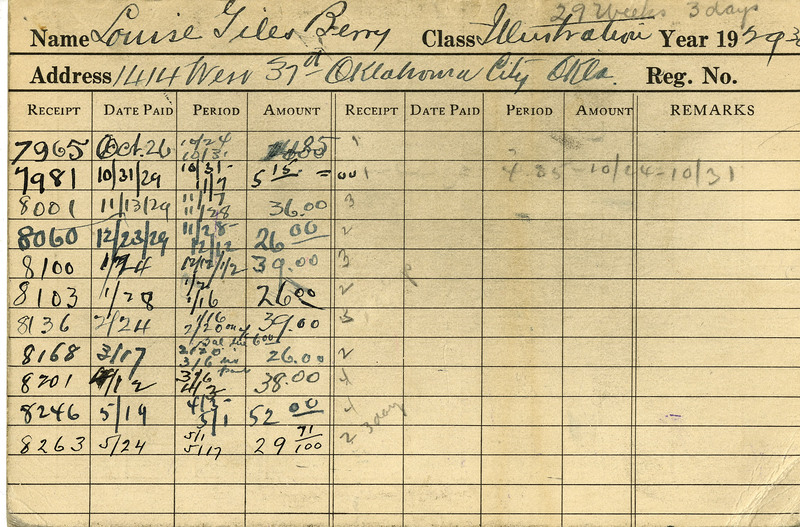 29 Weeks 3 days
Name Louise Giles Berry Class Illustration Year 1929
Address 1414 West 37 Oklahoma City Okla. Reg. No.
RECEIPT DATE PAID PERIOD AMOUNT RECEIPT DATE PAID PERIOD AMOUNT REMARKS
7965 Oct. 26 10/24 10/31 4.85 1
7981 10/31/29 10/31- 11/7 5 15 1 4.85-10/24-10/31
8001 11/13/29 11/7 11/28 36.00 3
8060 12/23/29 11/28- 12/12 26 00 2
8100 12/12/ 1/2 39.00 3
8103 1/28 1/2 1/16 26 00 2
8136 2/24 1/16 2/20 39.00 3
8168 3/17 2/20 3/6 26.00 2
8201 4/12 3/6 4/2 38.00 4
8246 5/19 4/3- 5/1 52 00 4
8263 5/24 5/1 5/17 29 71/100 2 3 day